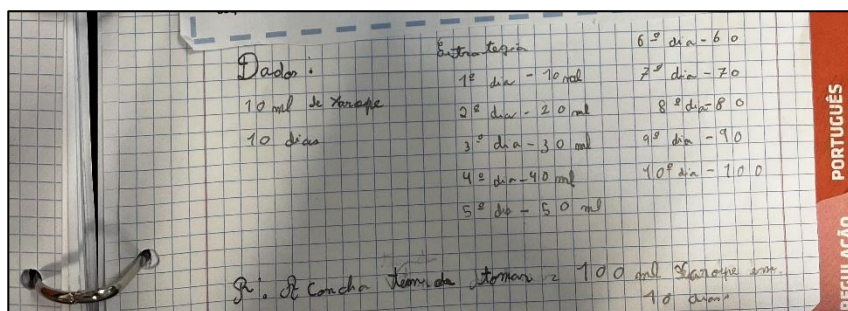 Dados:
10 ml de Xarope
10 dias
Estrategia
1º dia - 10 ml
2º dia - 20 ml
3º dia - 30 ml
4º dia - 40 ml
5º dia - 50 ml
6º dia - 60
7º dia - 70
8º dia - 80
9º dia - 90
10º dia - 100
R: A concha tem de tomar 100 ml Xarope em
10 dias
PORTUGUÊS
REGULAÇÃO